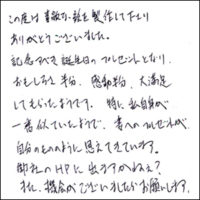 この度は素敵な絵を製作して下さり
ありがとうございました。
記念すべき誕生日のプレゼントとなり、
おもしろさ半分、感動半分、大満足
してもらったようです。特に私自身が
一番似ていたようで、妻へのプレゼントが
自分のもののように思えてきています。
御社のHPに出ますかねぇ?
また、機会がございましたらお願いします。